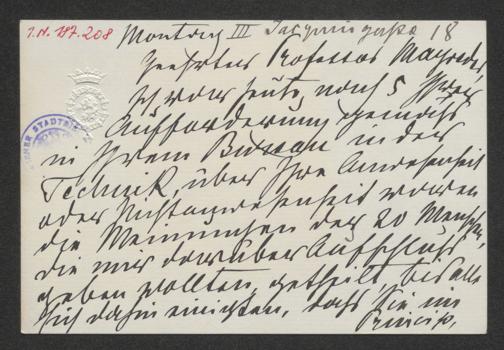 I.N. 187.208
Montag III Jacquingasse 18
Geehrter Professor Mayreder,
Ich war heute, nach 5 Ihrer
Aufforderung gemäss
in Ihrem Bureau in der
Technik, über Ihre Anwesenheit
oder Nichtanwesenheit waren
die Meinungen der 20 Menschen,
die mir darüber Aufschluss
geben wollten, getheilt, bis alle
sich dahin einigten, dass Sie im
Princip,